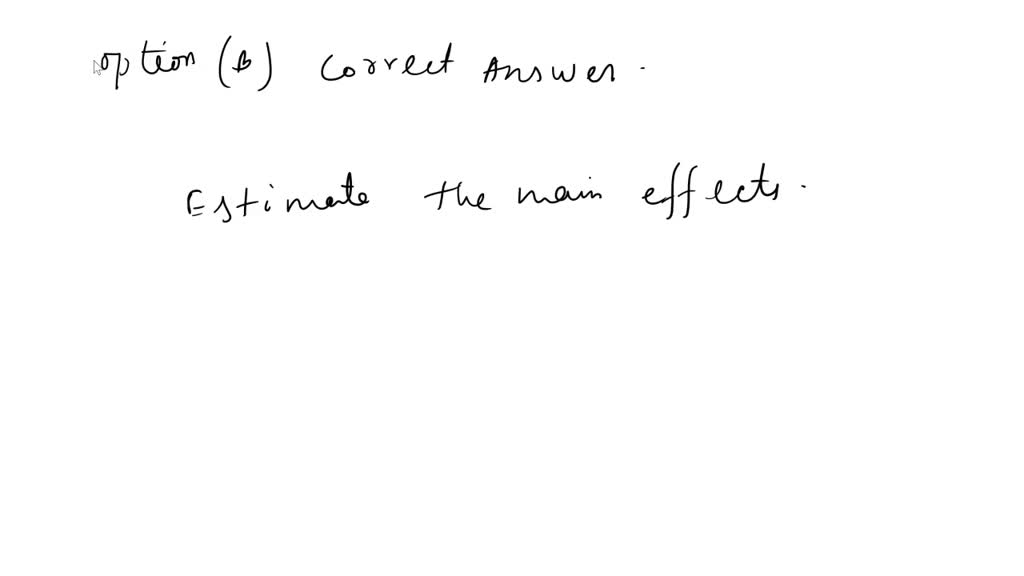 option (B) correct Answer.
Estimate the main effects.